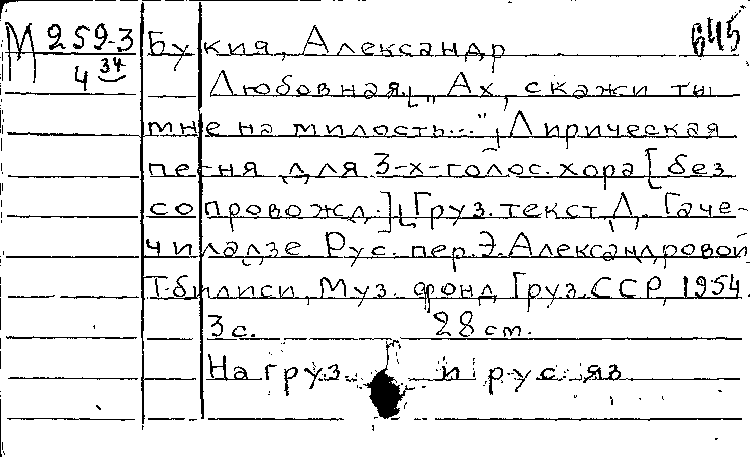 М 259-3 Букия, Александр 645
4 34
Любовная „Ах, скажи ты
мне на милость...", Лирическая
песня для 3-х-голос. хора [без
сопровожд.] Груз. текст Д. Гаче-
чиладзе. Рус. пер. Э. Александровой
Тбилиси, Муз. фонд Груз. ССР, 1954.
3 с. 28 см.
На груз. и рус. яз